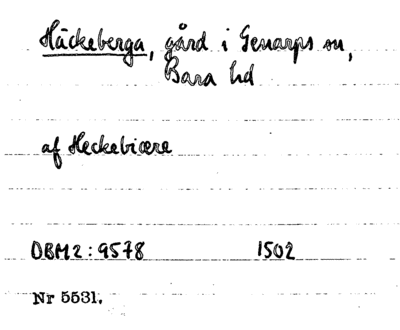 Häckeberga, gård i Genarps sn,
Bara hd
af Heckebiære
DBM2:9578 1502
Nr 5531.